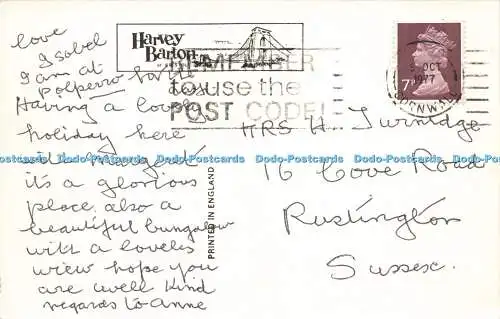 love
Isobel
I am at
Polperro for the
Having a lovely day
holiday here
with Margaret
its a glorious
place also a
beautiful bungalow
with a lovely
view hope you
are well kind
regards to Anne
Harvey
Barton
REMEMBER
to use the
POST CODE!
OCT
1977
CORNWALL
7P
MRS H. Turnidge
16 Cove Road
Rustington
Sussex.
PRINTED IN ENGLAND
Dodo-Postcards Dodo-Postcards Dodo-Postcards Dodo-Postcards Dodo-Postcards Dodo-Postcards